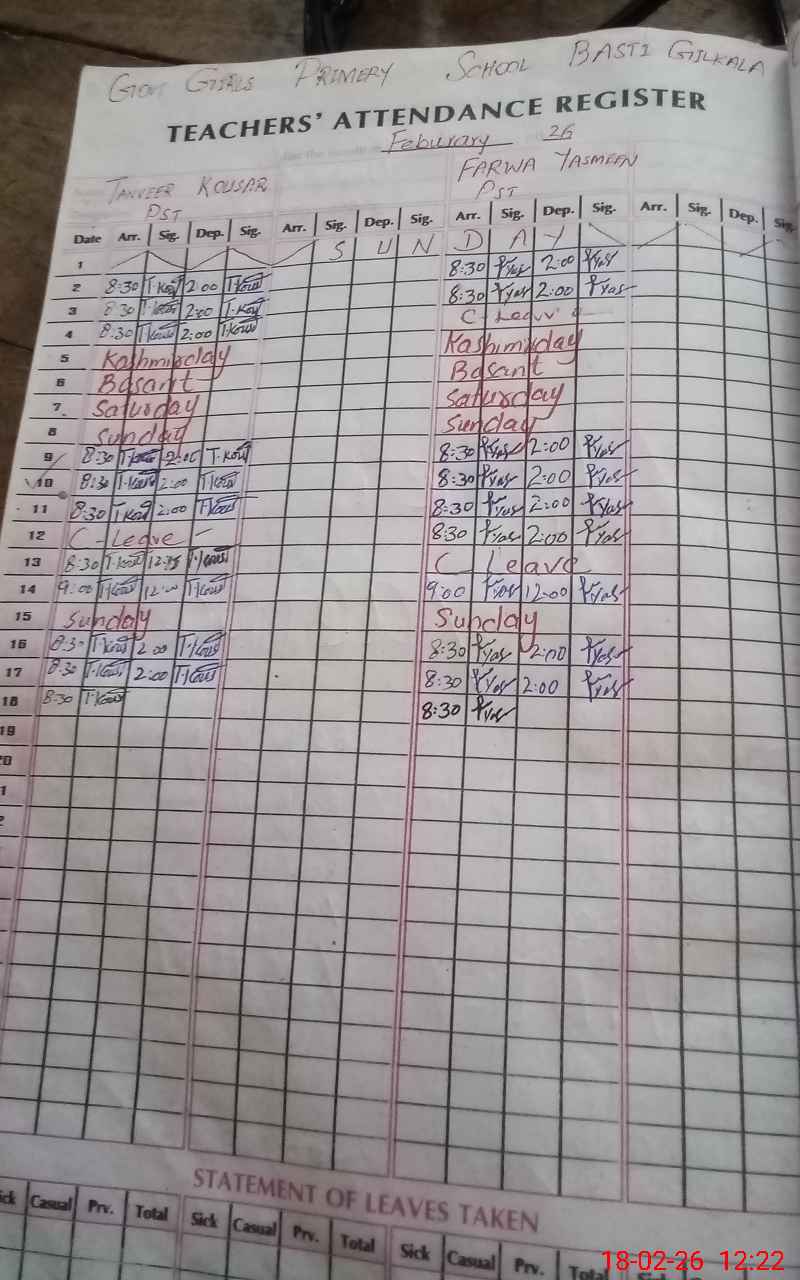 Govt Girls Primery School Basti Gilkala
TEACHERS' ATTENDANCE REGISTER
Feburary 26
Tanveer Kousar Farwa Yasmeen
PST PST
Date Arr. Sig. Dep. Sig. Arr. Sig. Dep. Sig. Arr. Sig. Dep. Sig. Arr. Sig. Dep. Sig.
1 S U N D A Y
2 8:30 T.Kous 2:00 T.Kous 8:30 FYas 2:00 FYas
3 8:30 T.Kous 2:00 T.Kous 8:30 FYas 2:00 FYas
4 8:30 T.Kous 2:00 T.Kous C-Leave
5 Kashmirday Kashmirday
6 Basant Basant
7 Saturday Saturday
8 Sunday Sunday
9 8:30 T.Kous 2:00 T.Kous 8:30 FYas 2:00 FYas
10 8:30 T.Kous 2:00 T.Kous 8:30 FYas 2:00 FYas
11 8:30 T.Kous 2:00 T.Kous 8:30 FYas 2:00 FYas
12 C-Leave - 8:30 FYas 2:00 FYas
13 8:30 T.Kous T.Kous C Leave
14 9:00 T.Kous 12:00 T.Kous 9:00 FYas 12:00 FYas
15 Sunday Sunday
16 8:30 T.Kous 2:00 T.Kous 8:30 FYas 2:00 FYas
17 8:30 T.Kous 2:00 T.Kous 8:30 FYas 2:00 FYas
18 8:30 T.Kous 8:30 FYas
19
STATEMENT OF LEAVES TAKEN
Casual Prv. Total Sick Casual Prv. Total Sick Casual Prv.
18-02-26 12:22